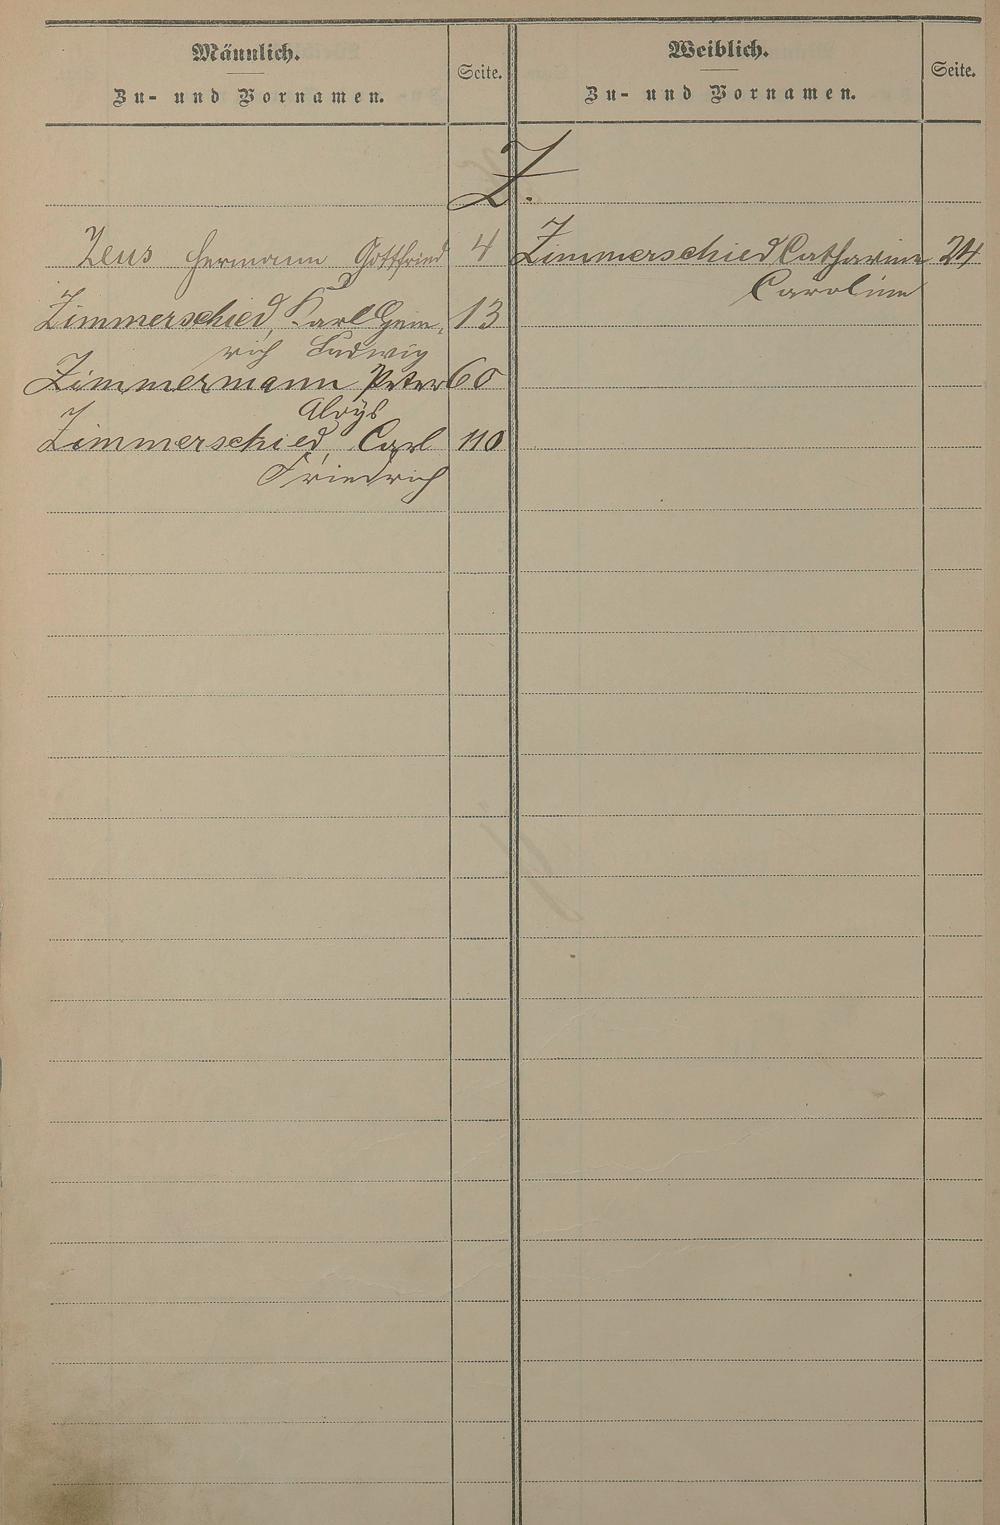 Männlich.
Zu- und Vornamen.
Seite.
Weiblich.
Zu- und Vornamen.
Seite.
Z.
Zeus Hermann Gottfried 4
Zimmerschied, Karl Hein-
rich Ludwig 13
Zimmermann Peter 60
Aloÿs
Zimmerschied, Carl 110
Friedrich
Zimmerschied Catharine 24
Caroline